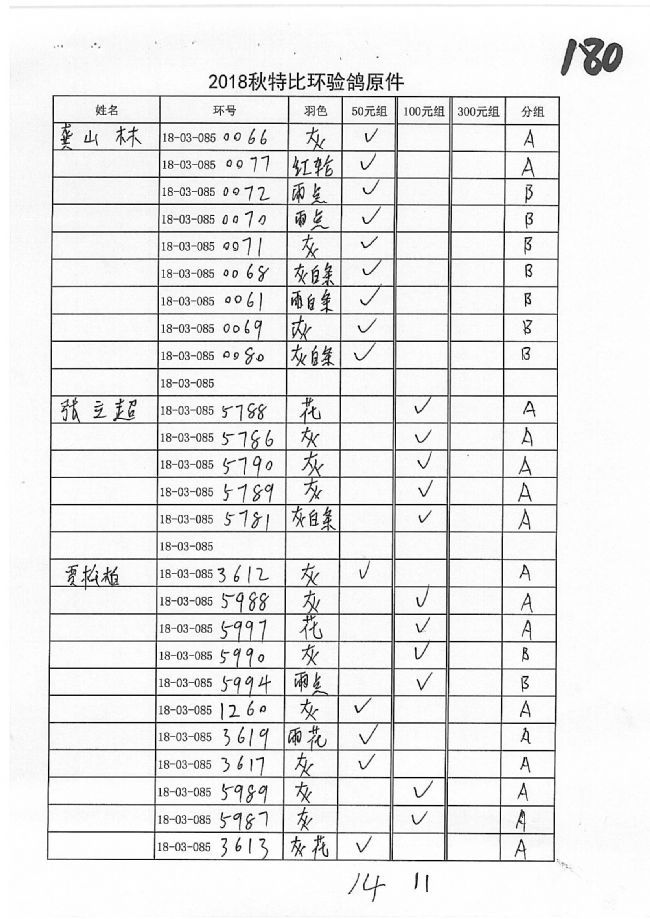 180
2018秋特比环验鸽原件
姓名 环号 羽色 50元组 100元组 300元组 分组
龚山林 18-03-085 0066 灰 ✓ A
18-03-085 0077 红轮 ✓ A
18-03-085 0072 雨点 ✓ B
18-03-085 0070 雨点 ✓ B
18-03-085 0071 灰 ✓ B
18-03-085 0068 灰白条 ✓ B
18-03-085 0061 雨白条 ✓ B
18-03-085 0069 灰 ✓ B
18-03-085 0080 灰白条 ✓ B
18-03-085
张立超 18-03-085 5788 花 ✓ A
18-03-085 5786 灰 ✓ A
18-03-085 5790 灰 ✓ A
18-03-085 5789 灰 ✓ A
18-03-085 5781 灰白条 ✓ A
18-03-085
贾松柏 18-03-085 3612 灰 ✓ A
18-03-085 5988 灰 ✓ A
18-03-085 5997 花 ✓ A
18-03-085 5990 灰 ✓ B
18-03-085 5994 雨点 ✓ B
18-03-085 1260 灰 ✓ A
18-03-085 3619 雨花 ✓ A
18-03-085 3617 灰 ✓ A
18-03-085 5989 灰 ✓ A
18-03-085 5987 灰 ✓ A
18-03-085 3613 灰花 ✓ A
14 11